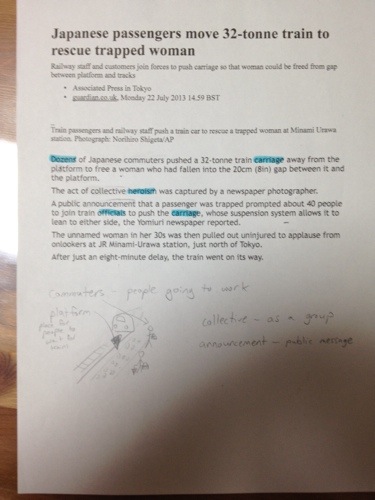 Japanese passengers move 32-tonne train to
rescue trapped woman
Railway staff and customers join forces to push carriage so that woman could be freed from gap
between platform and tracks
• Associated Press in Tokyo
• guardian.co.uk, Monday 22 July 2013 14.59 BST
Train passengers and railway staff push a train car to rescue a trapped woman at Minami Urawa
station. Photograph: Norihiro Shigeta/AP
Dozens of Japanese commuters pushed a 32-tonne train carriage away from the
platform to free a woman who had fallen into the 20cm (8in) gap between it and
the platform.
The act of collective heroism was captured by a newspaper photographer.
A public announcement that a passenger was trapped prompted about 40 people
to join train officials to push the carriage, whose suspension system allows it to
lean to either side, the Yomiuri newspaper reported.
The unnamed woman in her 30s was then pulled out uninjured to applause from
onlookers at JR Minami-Urawa station, just north of Tokyo.
After just an eight-minute delay, the train went on its way.
commuters - people going to work
platform -
place for
people to
wait for
train
collective - as a group
announcement - public message